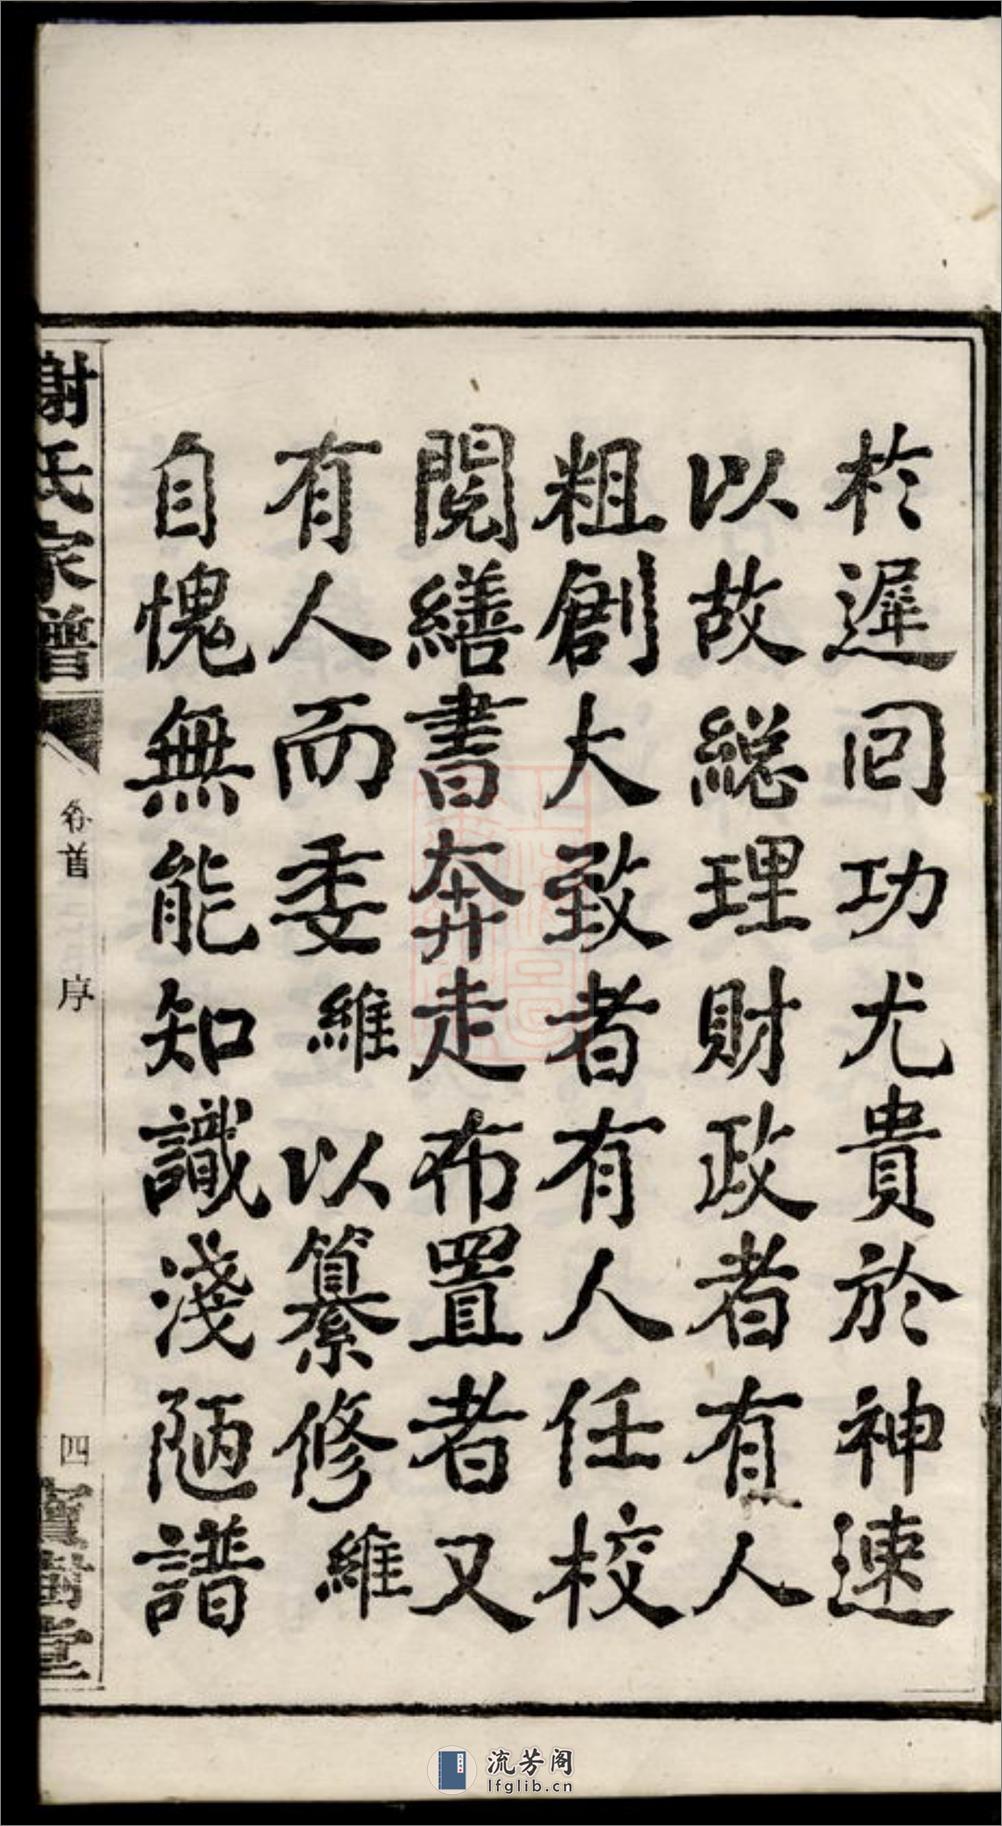 於遲回功尤貴於神速
以故總理財政者有人
粗創大致者有人任校
閱繕書奔走布置者又
有人而委維以纂修維
自愧無能知識淺陋譜
謝氏家譜
卷首
序
四
寶樹堂
流芳阁
lfglib.cn